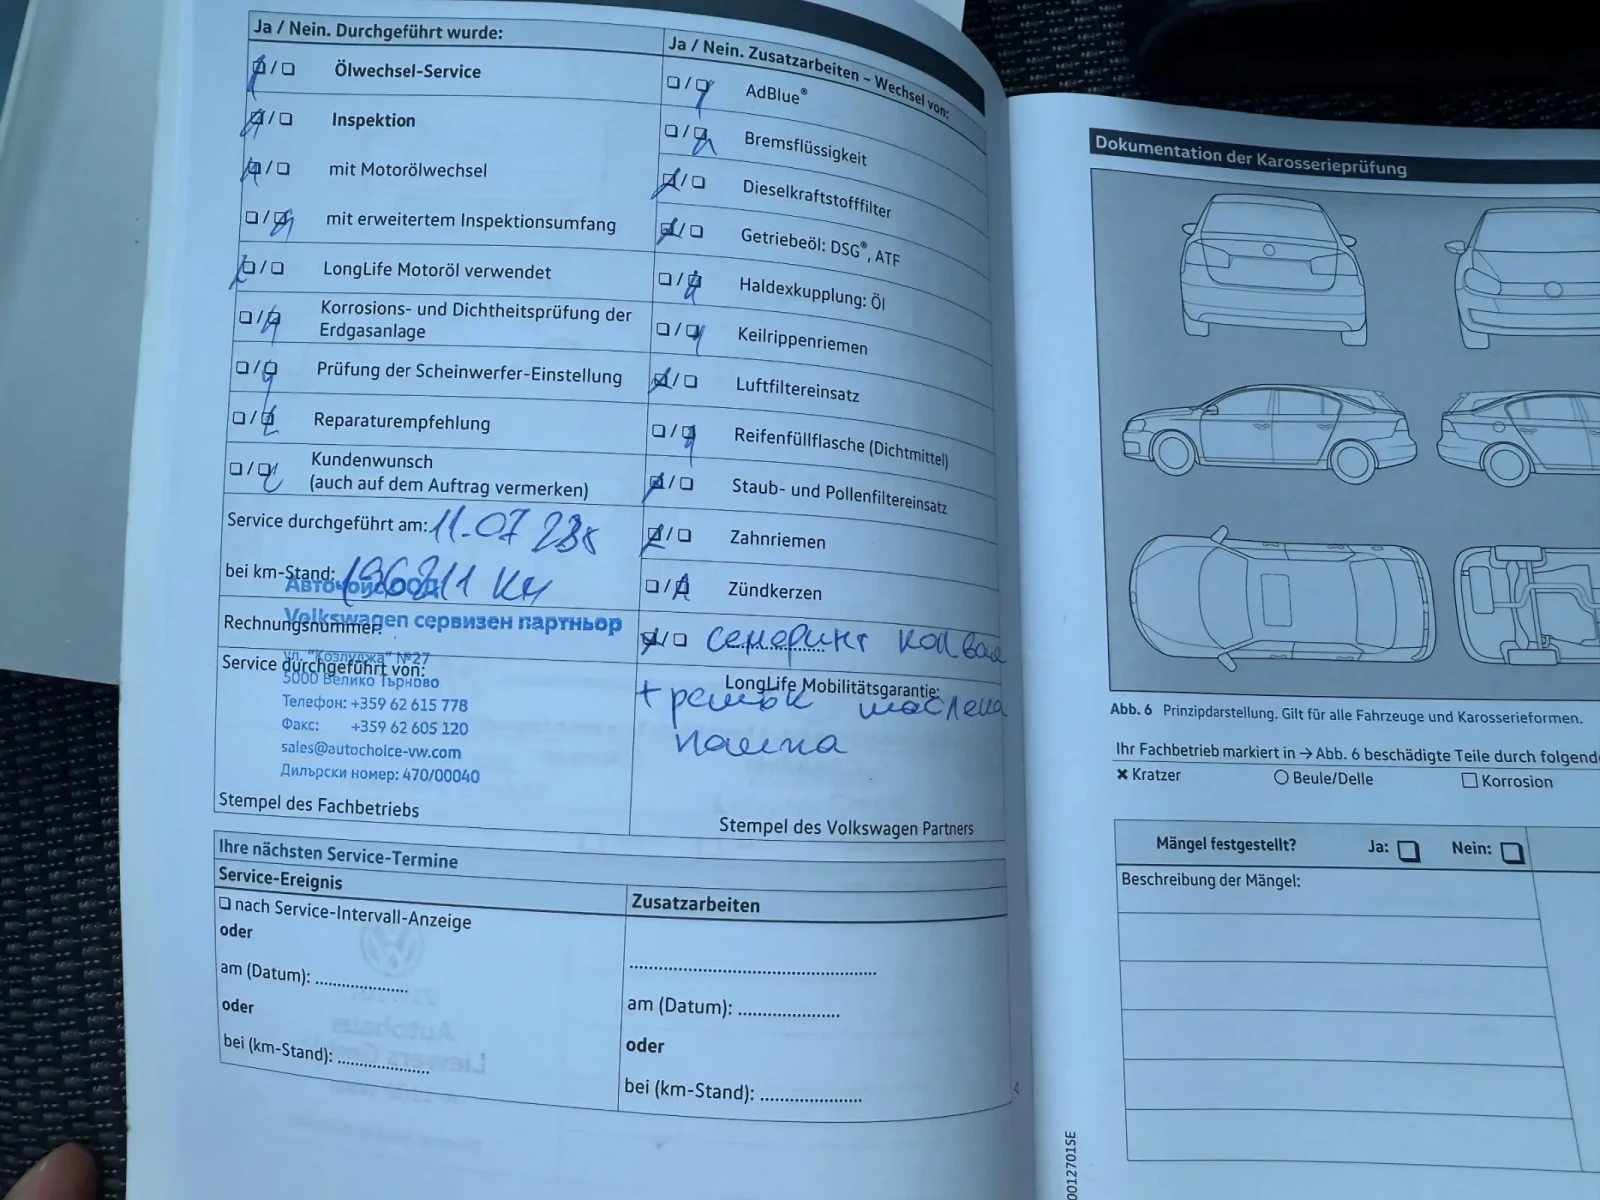 Ja / Nein. Durchgeführt wurde:
Ölwechsel-Service
Inspektion
mit Motorölwechsel
mit erweitertem Inspektionsumfang
LongLife Motoröl verwendet
Korrosions- und Dichtheitsprüfung der
Erdgasanlage
Prüfung der Scheinwerfer-Einstellung
Reparaturempfehlung
Kundenwunsch
(auch auf dem Auftrag vermerken)
Service durchgeführt am: 11.07
bei km-Stand:
Авточойс ООД
Rechnungsnummer:
Volkswagen сервизен партньор
Service durchgeführt von:
ул. "Козлуджа" №27
5000 Велико Търново
Телефон: +359 62 615 778
Факс: +359 62 605 120
sales@autochoice-vw.com
Дилърски номер: 470/00040
Stempel des Fachbetriebs
Ja / Nein. Zusatzarbeiten – Wechsel von:
AdBlue®
Bremsflüssigkeit
Dieselkraftstofffilter
Getriebeöl: DSG®, ATF
Haldexkupplung: Öl
Keilrippenriemen
Luftfiltereinsatz
Reifenfüllflasche (Dichtmittel)
Staub- und Pollenfiltereinsatz
Zahnriemen
Zündkerzen
семеринг
LongLife Mobilitätsgarantie:
+ маслена
помпа
Stempel des Volkswagen Partners
Ihre nächsten Service-Termine
Service-Ereignis
nach Service-Intervall-Anzeige
oder
am (Datum):
oder
bei (km-Stand):
Zusatzarbeiten
am (Datum):
oder
bei (km-Stand):
Dokumentation der Karosserieprüfung
Abb. 6 Prinzipdarstellung. Gilt für alle Fahrzeuge und Karosserieformen.
Ihr Fachbetrieb markiert in → Abb. 6 beschädigte Teile durch folgend
Kratzer Beule/Delle Korrosion
Mängel festgestellt? Ja: Nein:
Beschreibung der Mängel:
0012701SE